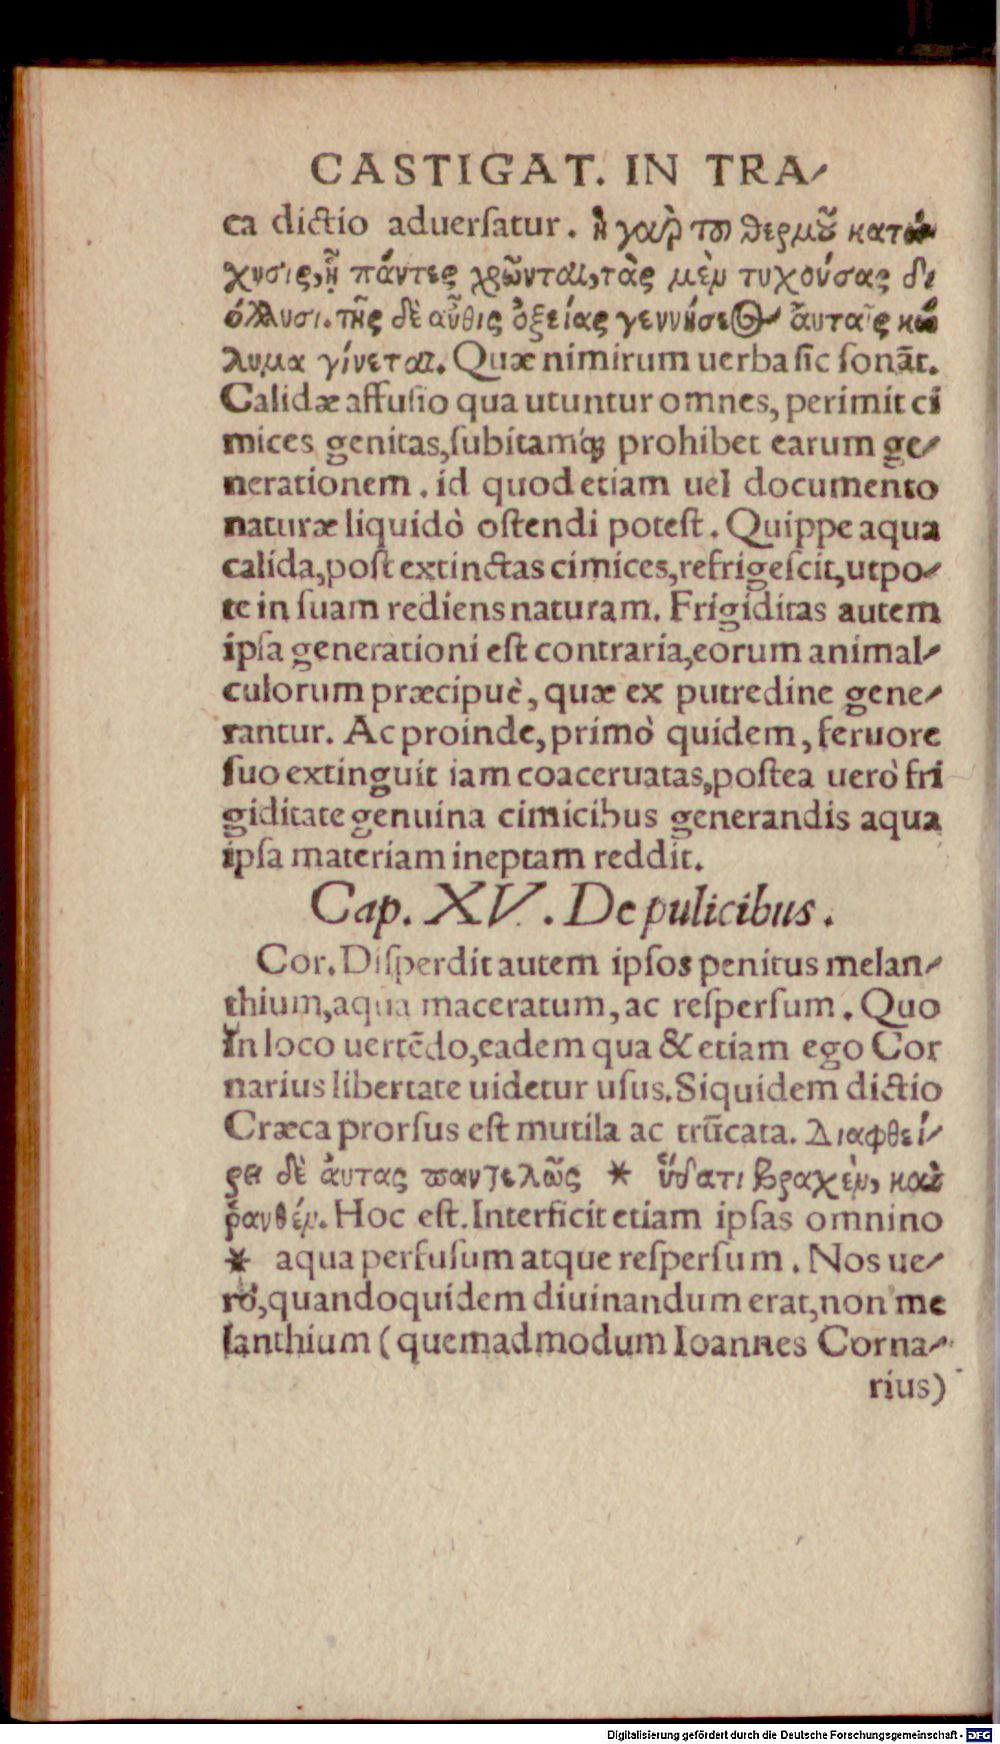 CASTIGAT. IN TRA-
ca dictio aduersatur. ἡ γαρ̀ τοῦ θερμοῦ κατά
χυσις, ᾗ πάντες χρῶνται, τὰς μὲν τυχούσας δι
όλλυσι. τῆς δὲ αὖθις ὀξείας γεννήσεως ἀυταῖς κώ
λυμα γίνεται. Quæ nimirum uerba sic sonãt.
Calidæ affusio qua utuntur omnes, perimit ci
mices genitas, subitamq́; prohibet earum ge-
nerationem. id quod etiam uel documento
naturæ liquidò ostendi potest. Quippe aqua
calida, post extinctas cimices, refrigescit, utpo-
te in suam rediens naturam. Frigiditas autem
ipsa generationi est contraria, eorum animal-
culorum præcipuè, quæ ex putredine gene-
rantur. Ac proinde, primò quidem, feruore
suo extinguit iam coaceruatas, postea uerò fri
giditate genuina cimicibus generandis aqua
ipsa materiam ineptam reddit.
Cap. XV. De pulicibus.
Cor. Disperdit autem ipsos penitus melan-
thium, aqua maceratum, ac respersum. Quo
in loco uertẽdo, eadem qua & etiam ego Cor
narius libertate uidetur usus. Siquidem dictio
Græca prorsus est mutila ac trũcata. Διαφθεί-
ρει δὲ ἀυτας παντελῶς * ὕδατι βραχὲν, καὶ
ῥανθέν. Hoc est. Interficit etiam ipsas omnino
* aqua perfusum atque respersum. Nos ue-
rò, quandoquidem diuinandum erat, non me
lanthium (quemadmodum Ioannes Corna-
rius)
Digitalisierung gefördert durch die Deutsche Forschungsgemeinschaft - DFG